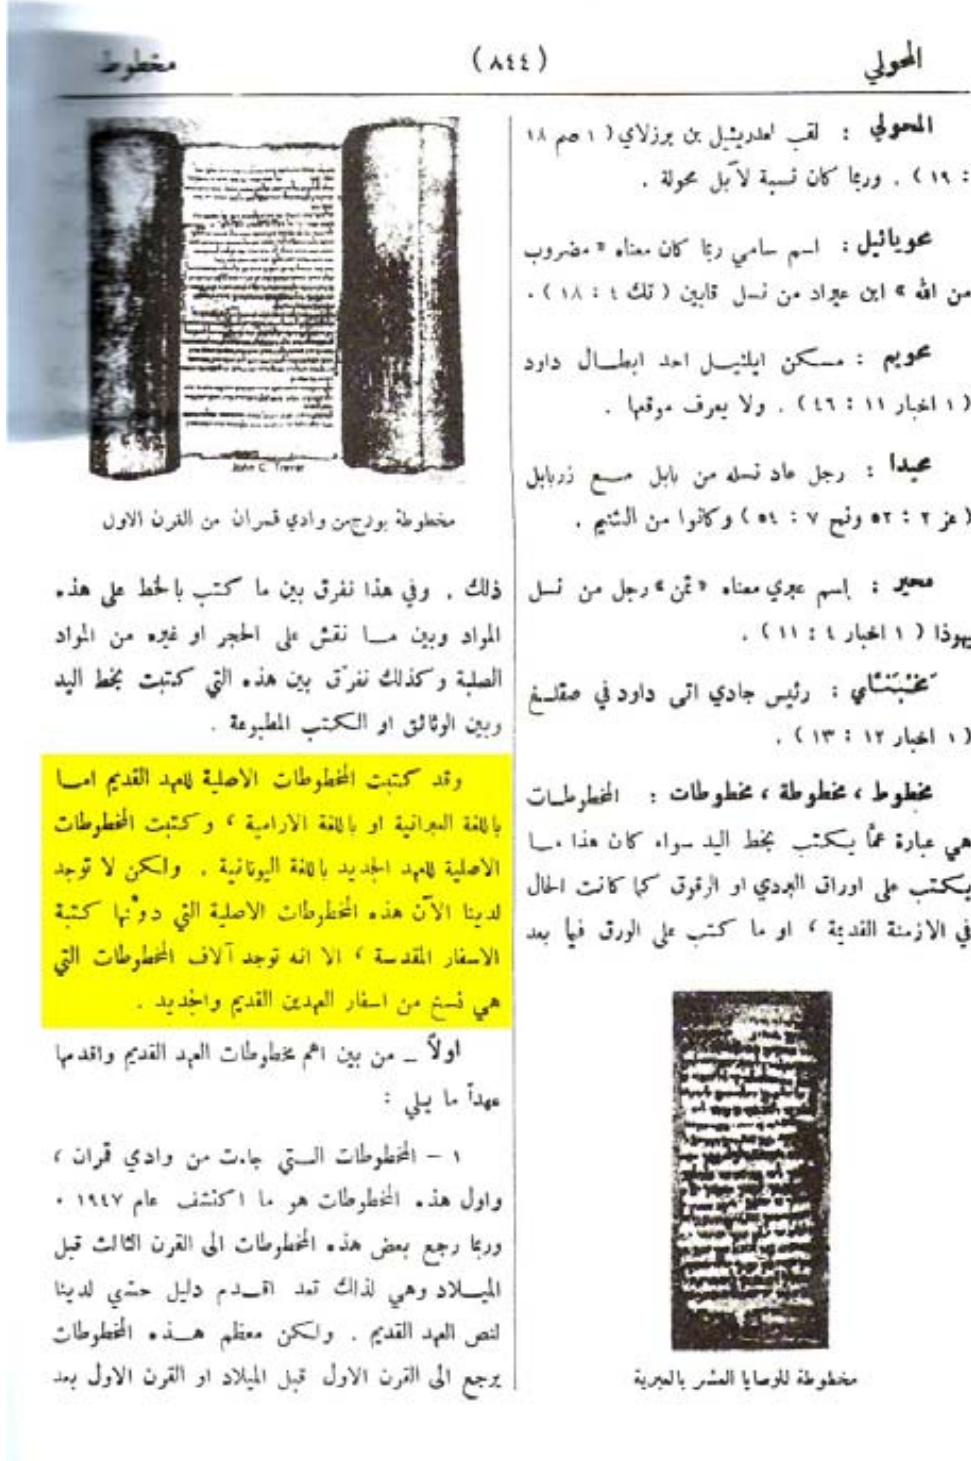 المحولي
(٨٤٤)
مخطوط
المحولي : لقب لعدريئيل بن برزلاي ( ١ صم ١٨
: ١٩ ) . وربما كان نسبة لآبل محولة .
محويائيل : اسم سامي ربما كان معناه « مضروب
من الله » ابن عيراد من نسل قايين ( تك ٤ : ١٨ ) .
محويم : مسكن ايليئيل احد ابطال داود
( ١ اخبار ١١ : ٤٦ ) . ولا يعرف موقعها .
محيدا : رجل عاد نسله من بابل مع زربابل
( عز ٢ : ٥٢ ونح ٧ : ٥٤ ) وكانوا من النثنيم .
محير : إسم عبري معناه « ثمن » رجل من نسل
يهوذا ( ١ اخبار ٤ : ١١ ) .
مَخْبَنَّاي : رئيس جادي اتى داود في صقلغ
( ١ اخبار ١٢ : ١٣ ) .
مخطوط ، مخطوطة ، مخطوطات : المخطوطات
هي عبارة عمَّا يكتب بخط اليد سواء كان هذا ما
يكتب على اوراق البردي او الرقوق كما كانت الحال
في الازمنة القديمة ، او ما كتب على الورق فيما بعد
مخطوطة للوصايا العشر بالعبرية
John C. Trever
مخطوطة بورج من وادي قمران من القرن الاول
ذلك . وفي هذا نفرق بين ما كتب بالخط على هذه
المواد وبين ما نقش على الحجر او غيره من المواد
الصلبة وكذلك نفرّق بين هذه التي كتبت بخط اليد
وبين الوثائق او الكتب المطبوعة .
وقد كتبت المخطوطات الاصلية للعهد القديم اما
باللغة العبرانية او باللغة الارامية ، وكتبت المخطوطات
الاصلية للعهد الجديد باللغة اليونانية . ولكن لا توجد
لدينا الآن هذه المخطوطات الاصلية التي دوَّنها كتبة
الاسفار المقدسة ، الا انه توجد آلاف المخطوطات التي
هي نسخ من اسفار العهدين القديم والجديد .
اولاً – من بين اهم مخطوطات العهد القديم واقدمها
عهداً ما يلي :
١ – المخطوطات التي جاءت من وادي قمران ،
واول هذه المخطوطات هو ما اكتشف عام ١٩٤٧ .
وربما رجع بعض هذه المخطوطات الى القرن الثالث قبل
الميلاد وهي لذلك تعد اقدم دليل حسّي لدينا
لنص العهد القديم . ولكن معظم هذه المخطوطات
يرجع الى القرن الاول قبل الميلاد او القرن الاول بعد